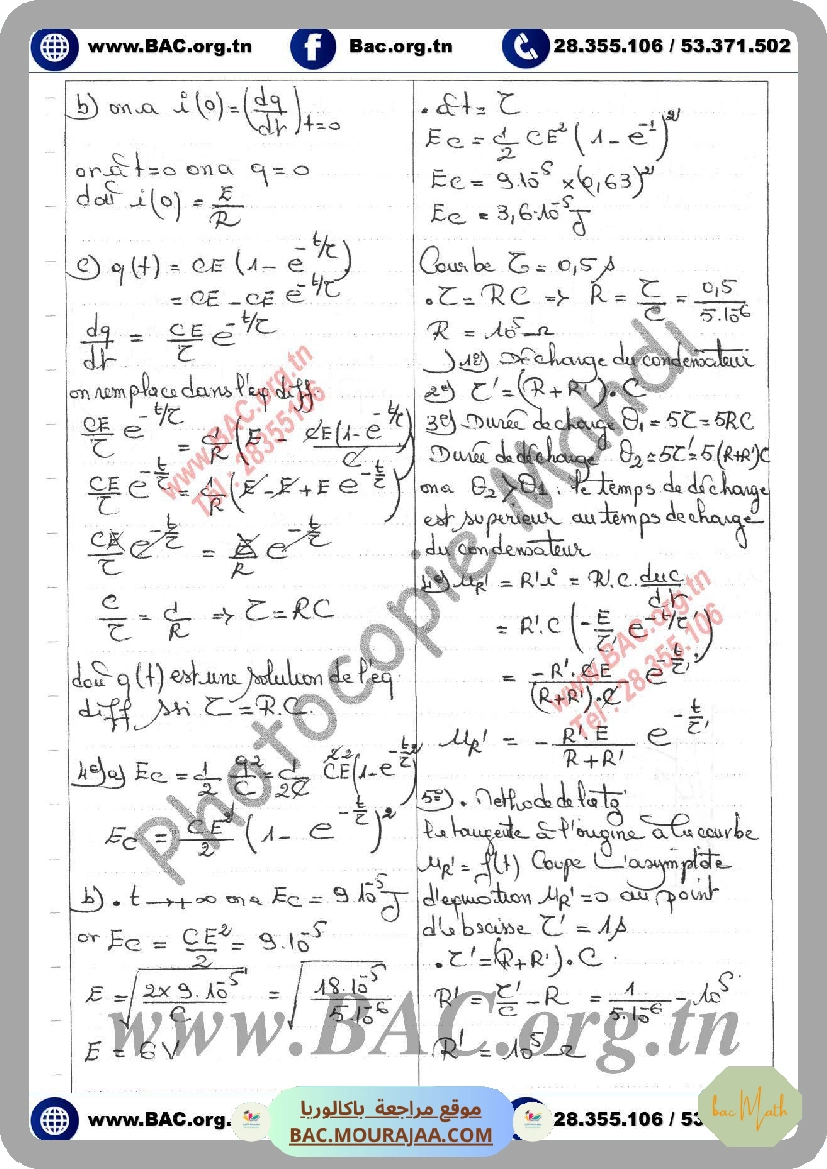 www.BAC.org.tn Bac.org.tn 28.355.106 / 53.371.502
b) on a i(0) = (dq/dt)t=0
or à t=0 on a q=0
d'où i(0) = E/R
c) q(t) = CE (1 - e^-t/τ)
= CE - CE e^-t/τ
dq/dt = CE/τ e^-t/τ
on remplace dans l'eq diff.
CE/τ e^-t/τ = 1/R (E - CE(1-e^-t/τ)/C)
CE/τ e^-t/τ = 1/R (E - E + E e^-t/τ)
CE/τ e^-t/τ = E/R e^-t/τ
C/τ = 1/R => τ = RC
d'où q(t) est une solution de l'eq
diff ssi τ = R.C.
4°) a) Ec = 1/2 q²/C = 1/2C C²E²(1-e^-t/τ)²
Ec = CE²/2 (1 - e^-t/τ)²
b) . t → +∞ on a Ec = 9.10^-5 J
or Ec = CE²/2 = 9.10^-5
E = √(2x9.10^-5/C) = √(18.10^-5/5.10^-6)
E = 6V
. à t = τ
Ec = 1/2 CE² (1 - e^-1)²
Ec = 9.10^-5 x (0,63)²
Ec = 3,6.10^-5 J
Courbe τ = 0,5 s
. τ = RC => R = τ/C = 0,5/5.10^-6
R = 10^5 Ω
) 1°) Décharge du condensateur
2°) τ' = (R+R').C
3°) Durée de charge θ1 = 5τ = 5RC
Durée de décharge θ2 = 5τ' = 5(R+R')C
on a θ2 > θ1 : le temps de décharge
est superieur au temps de charge
du condensateur
4°) uR' = R'i = R'.C.duc/dt
= R'.C (-E/τ' e^-t/τ')
= -R'.CE/(R+R').C e^-t/τ'
uR' = - R'.E/R+R' e^-t/τ'
5°) . Methode de la tg
la tangente à l'origine à la courbe
uR' = f(t) Coupe L'asymptote
d'equation uR'=0 au point
d'abscisse τ' = 1s
. τ' = (R+R').C
R' = τ'/C - R = 1/5.10^-6 - 10^5
R' = 10^5 Ω
Photocopie Mahdi
www.BAC.org.tn
Tel : 28355106
www.BAC.org.tn
Tel : 28.355.106
www.BAC.org.tn
www.BAC.org. 28.355.106 / 53
موقع مراجعة باكالوريا
BAC.MOURAJAA.COM
bac Math